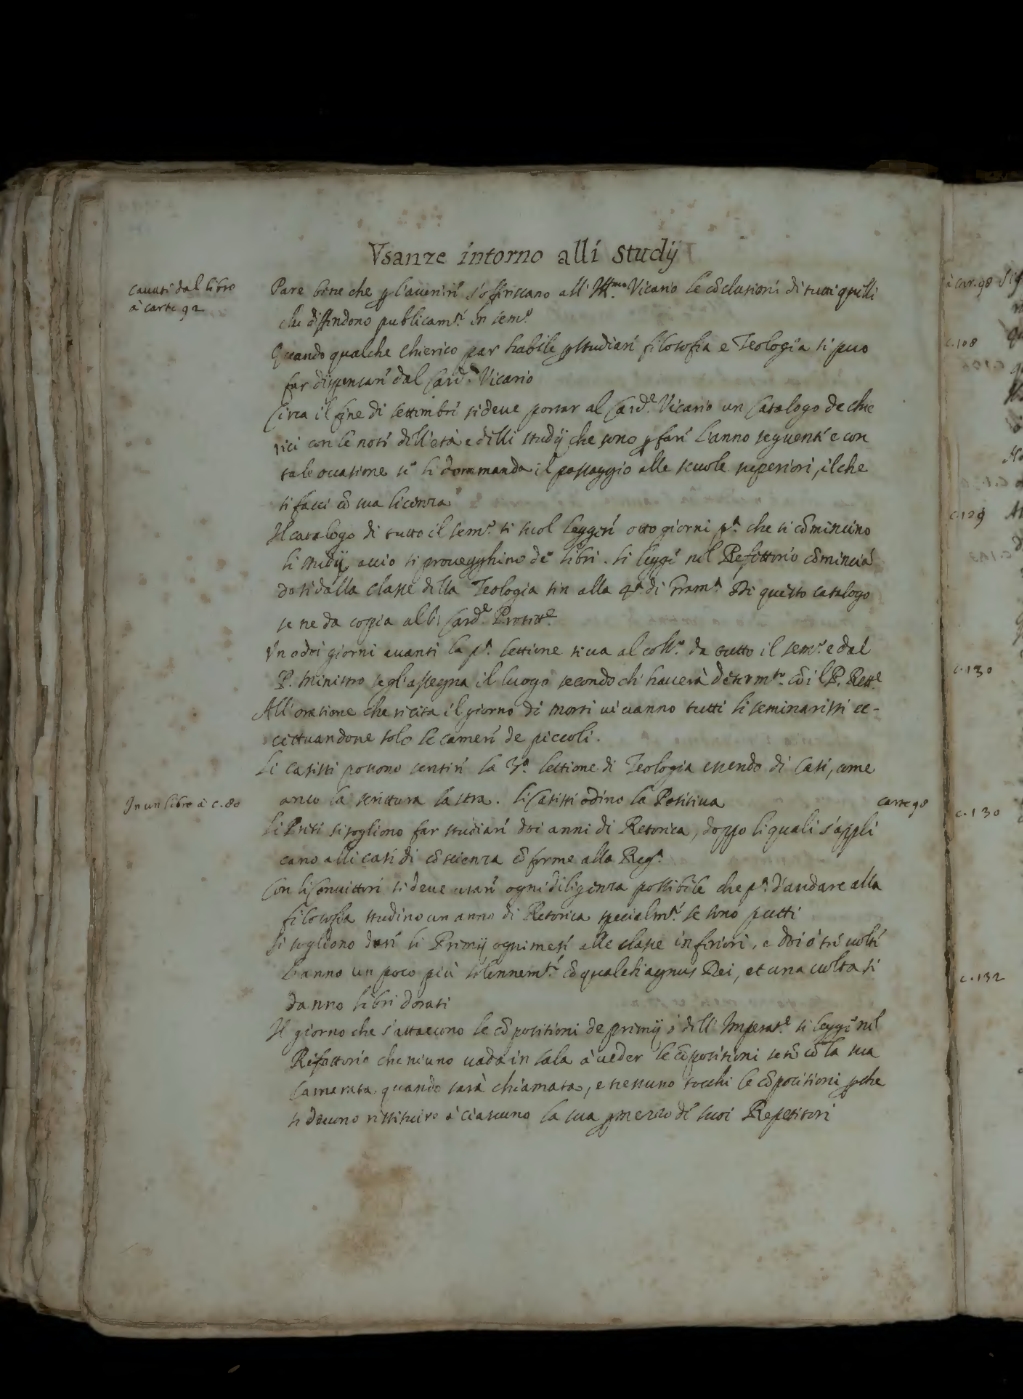 Vsanze intorno alli Studij
cauati dal libro
à carte 92
Pare bene che p l'auenire s'offriscano all' Ill.mo Vicario le cõclusioni di tutti quelli
che diffendono publicam.te in sem.o
Quando qualche Chierico par habile p studiare filosofia e Teologia si puo
far dispensare dal Card.e Vicario
Circa il fine di settembre si deue portar al Card.e Vicario un Catalogo de chie
rici con le note dell'età e delli studij che sono p fare l'anno seguente e con
tale occasione se li dommanda il passaggio alle scuole superiori, il che
si facci cõ sua licenza
Il catalogo di tutto il sem.o si suol leggere otto giorni p.a che si cõmincino
li studij accio si prouegghino de libri. si legge nel Refettorio cõmincia
dosi dalla classe della Teologia sin alla 4.a di Gram.a Di questo catalogo
se ne da copia al Card.e Protet.e
Vn o doi giorni auanti la p.a lettione si ua al coll.o da tutto il sem.o e dal
P. Ministro se gl'assegna il luogo secondo ch' hauerà determ.to cõ il P. Rett.e
All'oratione che si recita il giorno de morti ui uanno tutti li seminaristi ec-
cettuandone solo le camere de piccoli.
Li casisti possono sentire la 3.a lettione di Teologia essendo di Casi, come
anco la scrittura sacra. li Casisti odino la Positiua
carte 98
In un libro à c. 80
li Preti si sogliono far studiare doi anni di Retorica, doppo li quali s'appli
cano alli casi di cõscienza cõforme alla Reg.a
Con li Conuittori si deue usare ogni diligenza possibile che p.a d'andare alla
filosofia studino un anno di Retorica specialm.te se sono putti
Si sogliono dare li Premij ogni mese alle classe inferiori, e doi ò tre uolte
l'anno un poco più sollennem.te cõ qualche agnus Dei, et una uolta si
danno libri dorati
Il giorno che s'attaccono le cõpositioni de premij, ò dell' Imperat.e si legge nel
Refettorio che niuno uada in sala à ueder le cõpositioni se nõ cõ la sua
Camerata quando sarà chiamata, e nessuno tocchi le cõpositioni pche
si deuono restituire à ciascuno la sua p mezzo de suoi Repetitori
c. 108
c. 129
c. 130
c. 130
c. 132